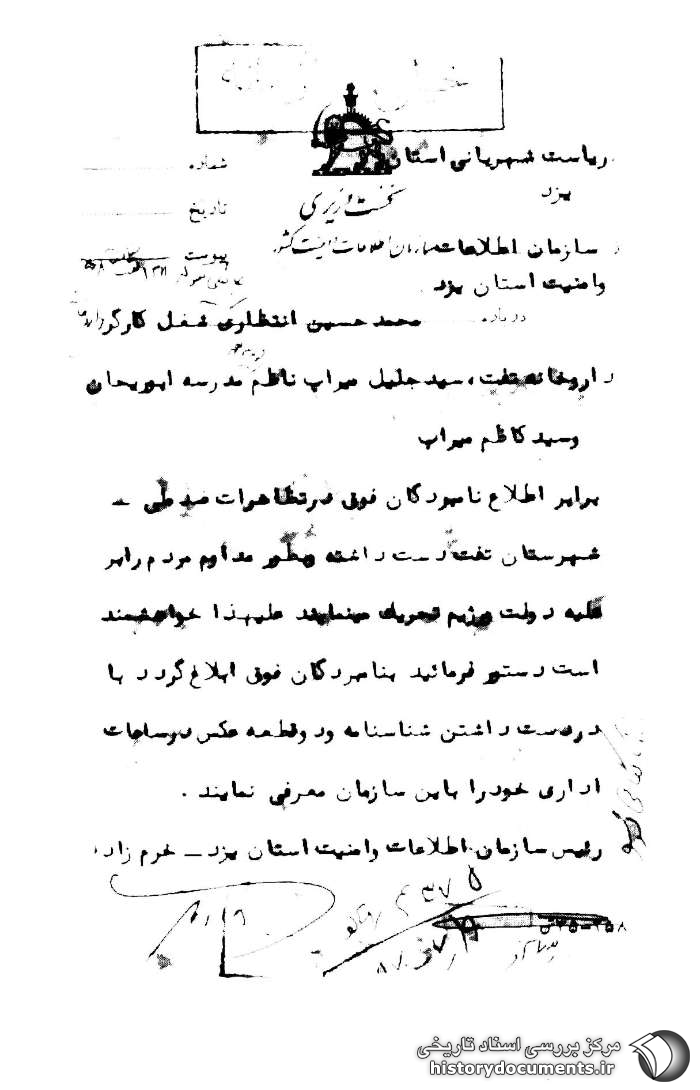 ریاست شهربانی استان
یزد
نخست وزیری
شماره
تاریخ
پیوست
سازمان اطلاعات سازمان اطلاعات و امنیت کشور
وامنیت استان یزد
درباره محمد حسین انتظاری شغل کارگر
داروخانه تفت ، سید جلیل میراب ناظم مدرسه ابوریحان
وسید کاظم میراب
برابر اطلاع نامبردگان فوق درتظاهرات ضد ملی –
شهرستان تفت دست داشته وبطور مداوم مردم رابر
علیه دولت ورژیم تحریک مینمایند علیهذا خواهشمند
است دستور فرمائید بنامبردگان فوق ابلاغ گردد با
دردست داشتن شناسنامه ودوقطعه عکس درساعات
اداری خودرا باین سازمان معرفی نمایند .
رئیس سازمان اطلاعات وامنیت استان یزد – خرم زاده
مرکز بررسی اسناد تاریخی
historydocuments.ir